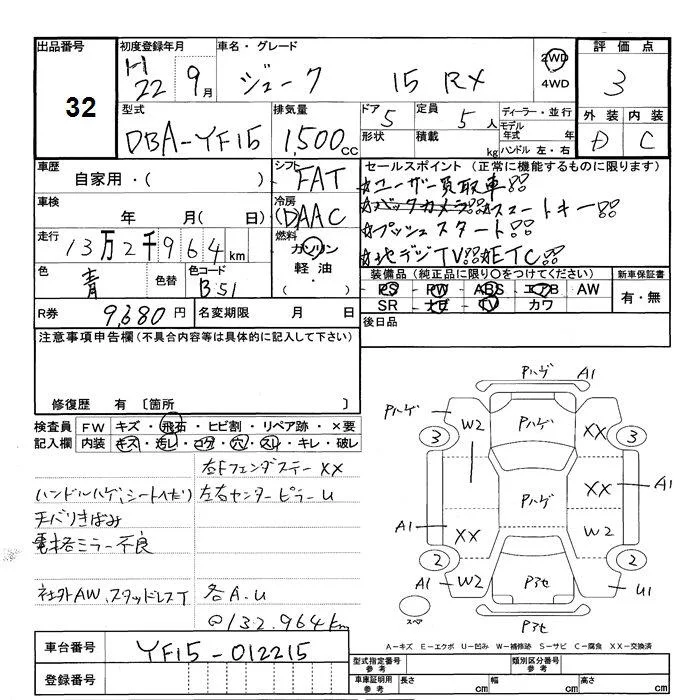 出品番号
32
初度登録年月
H22 9月
車名・グレード
ジューク 15 RX
2WD
4WD
評価点
3
外装 内装
D C
型式
DBA-YF15
排気量
1,500cc
ドア 5
形状
定員 5人
積載 kg
ディーラー・並行
モデル年式 年
ハンドル 左・右
車歴
自家用・( )
シフト
FAT
車検
年 月(日)
冷房
(D)AAC
走行
13万2千964km
燃料
ガソリン
軽油
・( )
色
青
色替
色コード
B51
R券
9,680円
名変期限 月 日
セールスポイント (正常に機能するものに限ります)
☆ユーザー買取車!!
☆バックカメラ!!☆スマートキー!!
☆プッシュスタート!!
☆地デジTV!!☆ETC!!
装備品 (純正品に限り〇をつけてください)
PS・PW・ABS・エアB AW
SR・ナビ・TV・カワ
新車保証書
有・無
後日品
注意事項申告欄 (不具合内容等は具体的に記入して下さい)
修復歴 有〔箇所 〕
検査員記入欄
FW キズ・飛石・ヒビ割・リペア跡・×要
内装 キズ・汚レ・コゲ・穴・スレ・キレ・破レ
右Fフェンダステー XX
ハンドルハゲ、シートヘタリ 左右センターピラーU
天バリきばみ
電格ミラー不良
社外AW、スタッドレスT 各A.U
@132.964km
車台番号
YF15-012215
登録番号
Pハゲ A1
Pハゲ
Pハゲ
3 W2 XX 3
Pハゲ XX A1
A1 XX W2
2 2
A1 W2 P3セ U1
スペア
P3セ
A-キズ E-エクボ U-凹み W-補修跡 S-サビ C-腐食 XX-交換済
型式指定番号
参考
類別区分番号
参考
車庫証明用
参考
長さ cm 幅 cm 高さ cm